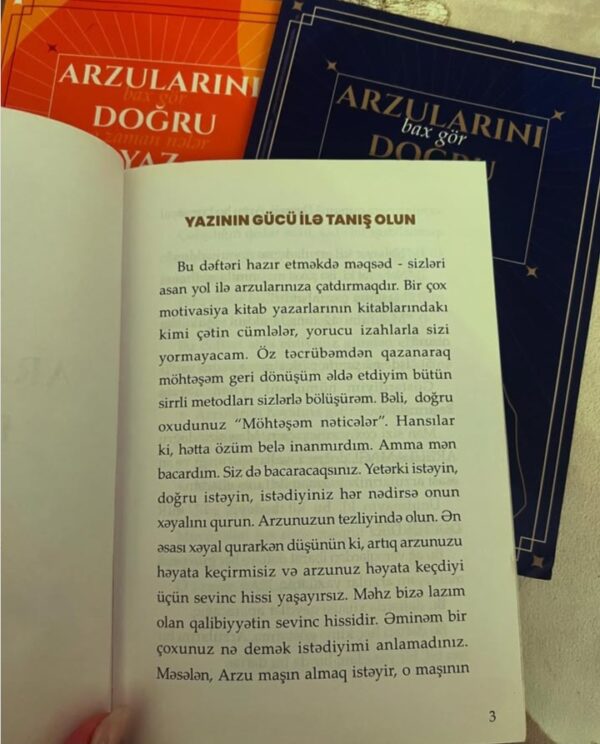 ARZULARINI
bax gör
DOĞRU
zaman nələr
YAZ
ARZULARINI
bax gör
DOĞRU
YAZININ GÜCÜ İLƏ TANIŞ OLUN
Bu dəftəri hazır etməkdə məqsəd - sizləri
asan yol ilə arzularınıza çatdırmaqdır. Bir çox
motivasiya kitab yazarlarının kitablarındakı
kimi çətin cümlələr, yorucu izahlarla sizi
yormayacam. Öz təcrübəmdən qazanaraq
möhtəşəm geri dönüşüm əldə etdiyim bütün
sirrli metodları sizlərlə bölüşürəm. Bəli, doğru
oxudunuz “Möhtəşəm nəticələr”. Hansılar
ki, hətta özüm belə inanmırdım. Amma mən
bacardım. Siz də bacaracaqsınız. Yetərki istəyin,
doğru istəyin, istədiyiniz hər nədirsə onun
xəyalını qurun. Arzunuzun tezliyində olun. Ən
əsası xəyal qurarkən düşünün ki, artıq arzunuzu
həyata keçirmisiz və arzunuz həyata keçdiyi
üçün sevinc hissi yaşayırsız. Məhz bizə lazım
olan qalibiyyətin sevinc hissidir. Əminəm bir
çoxunuz nə demək istədiyimi anlamadınız.
Məsələn, Arzu maşın almaq istəyir, o maşının
3